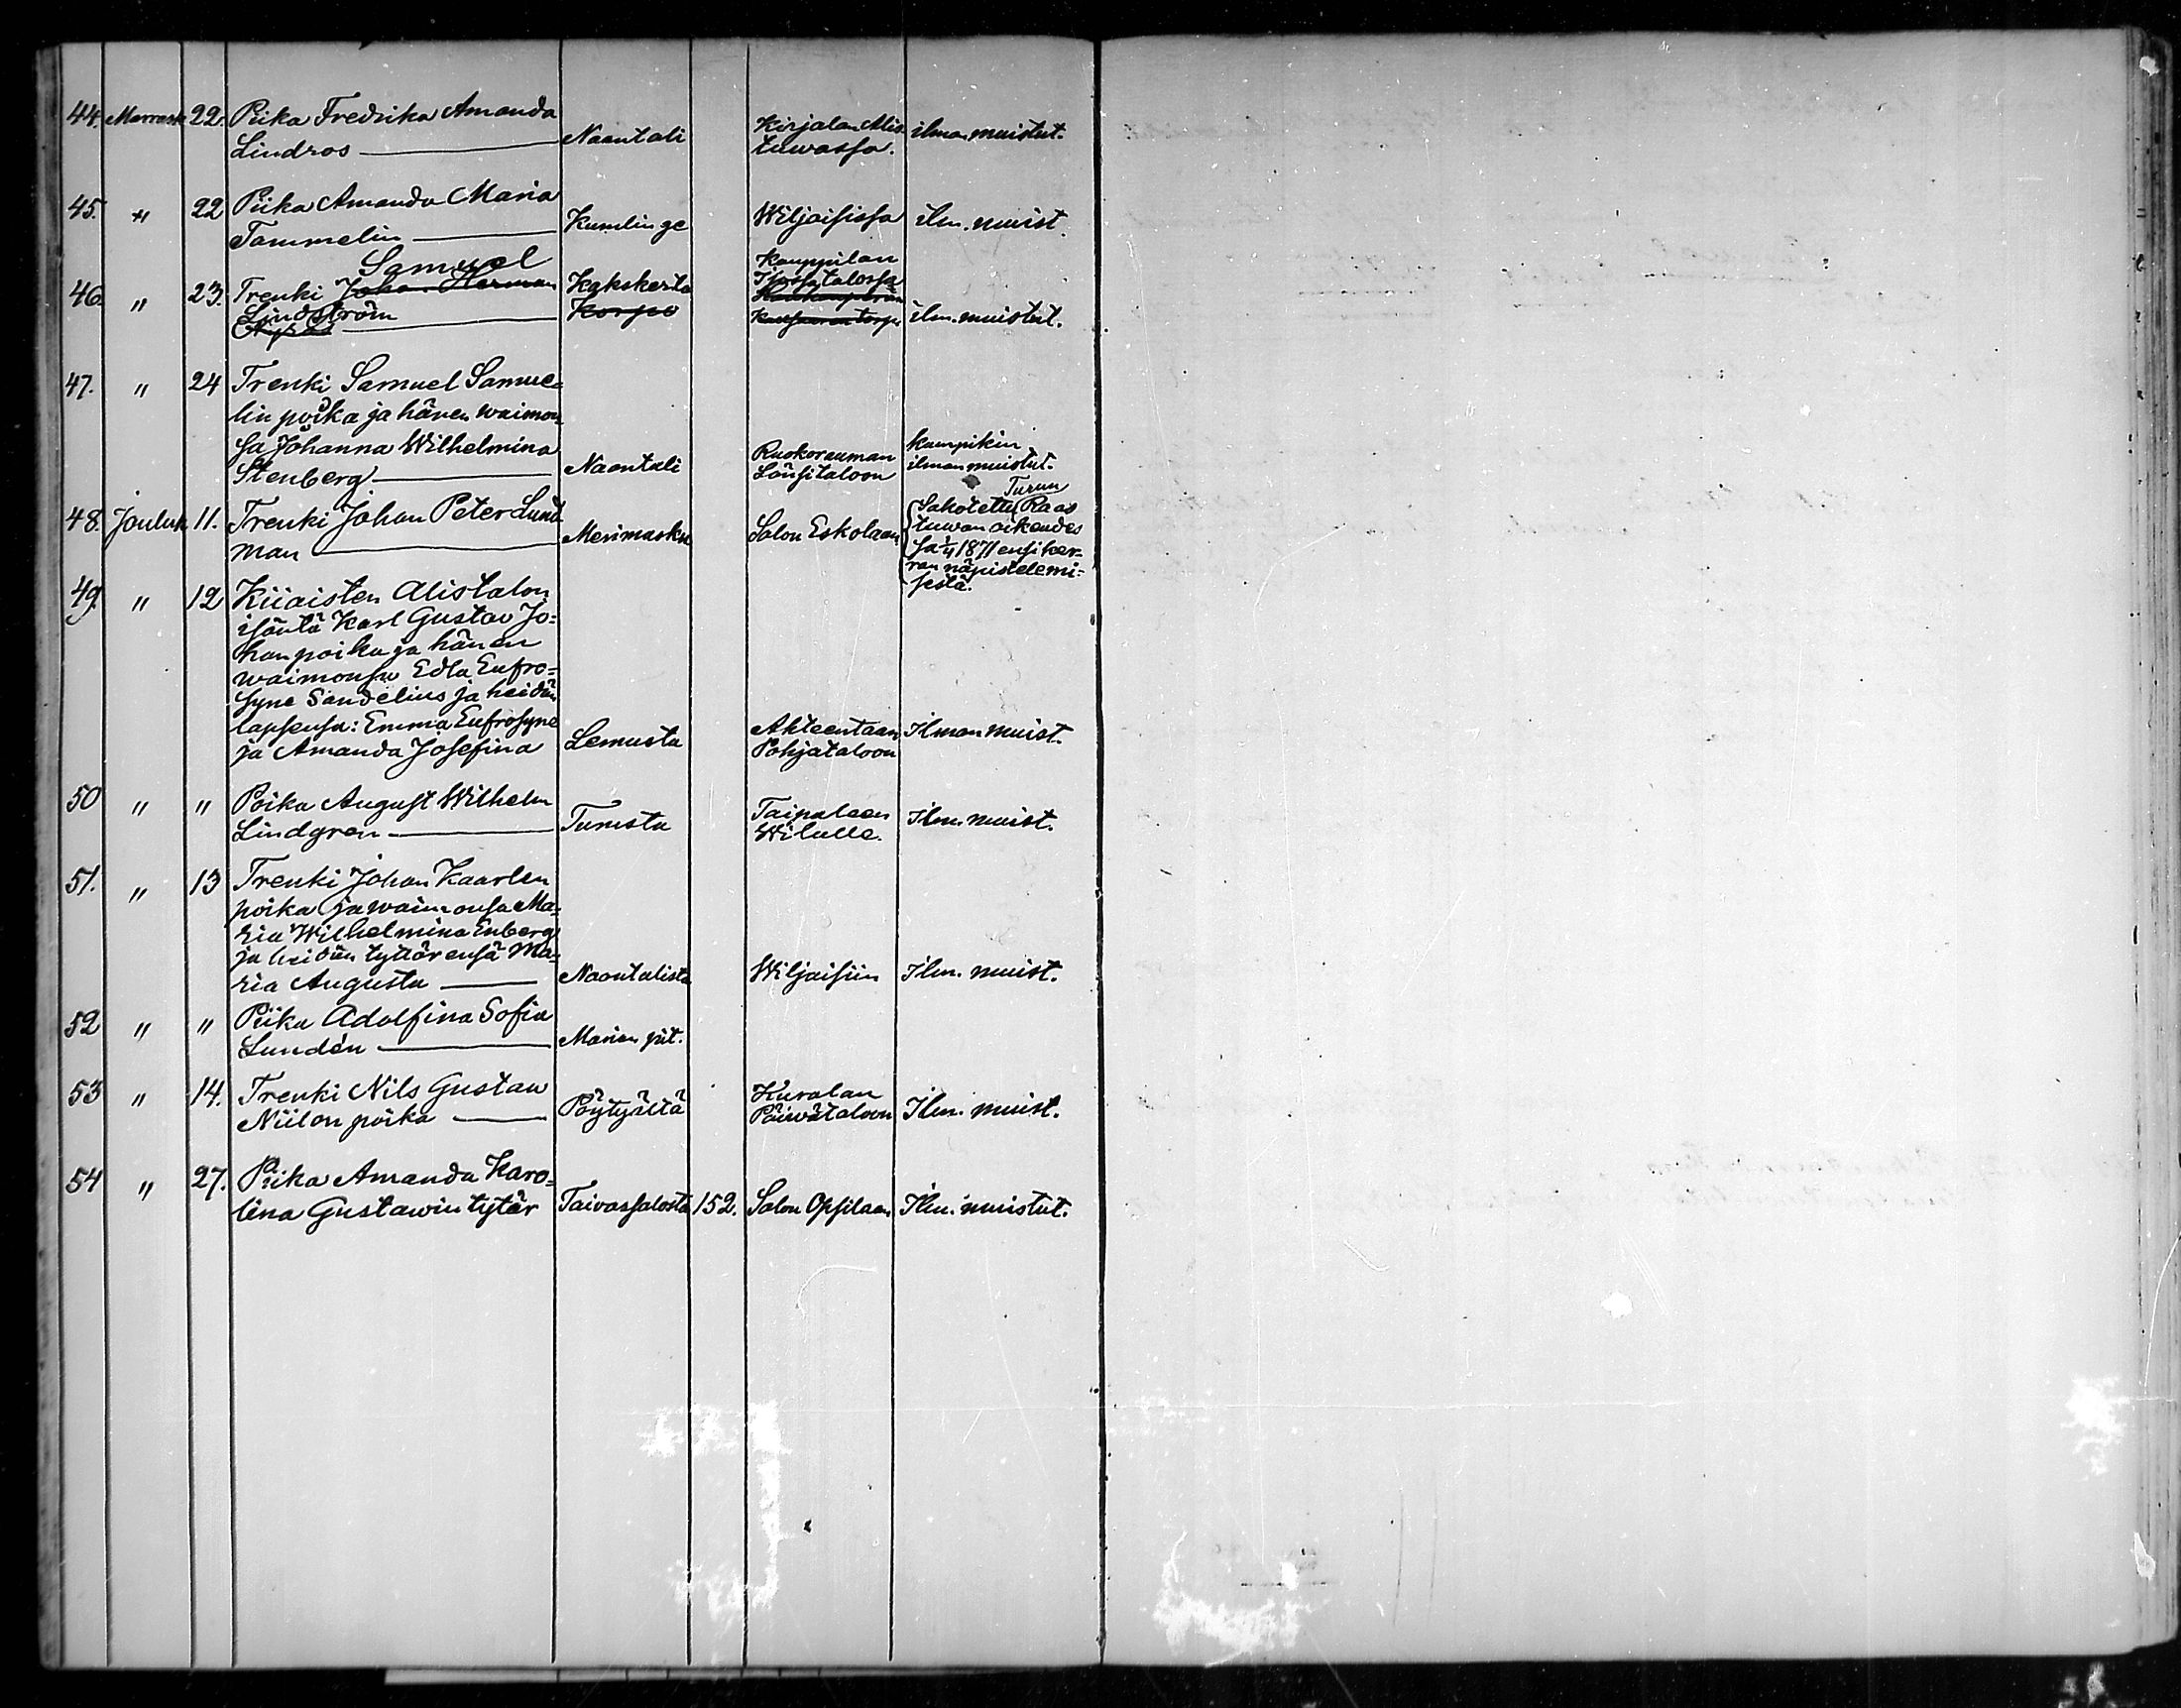 44. Marrask 22. Piika Fredrika Amanda
Lindros Naantali Kirjalan Alis- ilman muistut.
tuwassa.
45. " 22 Piika Amanda Maria
Tammelin Kumlinge Wiljaisissa ilm. muist.
Samuel Kauppilan
46. " 23. Trenki Johan Herman Kakskerta talossa
Lindström Korpo ilm. muistut.
47. " 24 Trenki Samuel Samue-
lin poika ja hänen waimon-
sa Johanna Wilhelmina kumpikin
Stenberg Naantali Ruokorauman ilman muistut.
Länsitaloon
48. Jouluk 11. Trenki Johan Peter Lund- Sakotettu Turun Raas
man Merimasku Salon Eskolaan tuwan oikeudes
sa 1/4 1871 ensi ker-
ran näpistelemi-
sestä.
49. " 12 Kiiaisten Alistalon
isäntä Karl Gustav Jo-
hanpoika ja hänen
waimonsa Edla Eufro-
syne Sandelius ja heidän
lapsensa: Emma Eufrosyne
ja Amanda Josefina Lemusta Ahteentaan Ilman muist.
Pohjataloon
50 " " Poika August Wilhelm
Lindgren Turusta Taipaleen Ilm. muist.
Wilulle.
51. " 13 Trenki Johan Kaarlen
poika ja waimonsa Ma-
ria Wilhelmina Enberg
ja heidän tyttärensä Ma-
ria Augusta Naantalista Wiljaisiin Ilm. muist.
52 " " Piika Adolfina Sofia
Lundén Marian pit.
53 " 14. Trenki Nils Gustaw Kuralan
Niilon poika Pöytyältä Päiwätaloon Ilm. muist.
54 " 27. Piika Amanda Karo-
lina Gustawin tytär Taivassalosta 152. Salon Opsilaan Ilm. muistut.